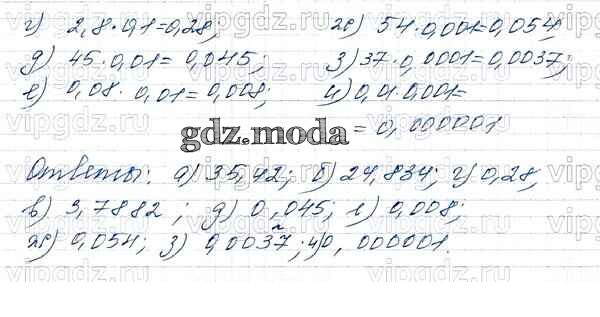 г) 2,8·0,1=0,28; ж) 54·0,001=0,054;
д) 45·0,01=0,045; з) 37·0,0001=0,0037;
е) 0,08·0,01=0,008; и) 0,01·0,001=
=0,000001
gdz.moda
Ответы: а) 35,42; б) 24,834; г) 0,28,
в) 3,7882; д) 0,045; е) 0,008;
ж) 0,054; з) 0,0037; и) 0,000001.
vipgdz.ru